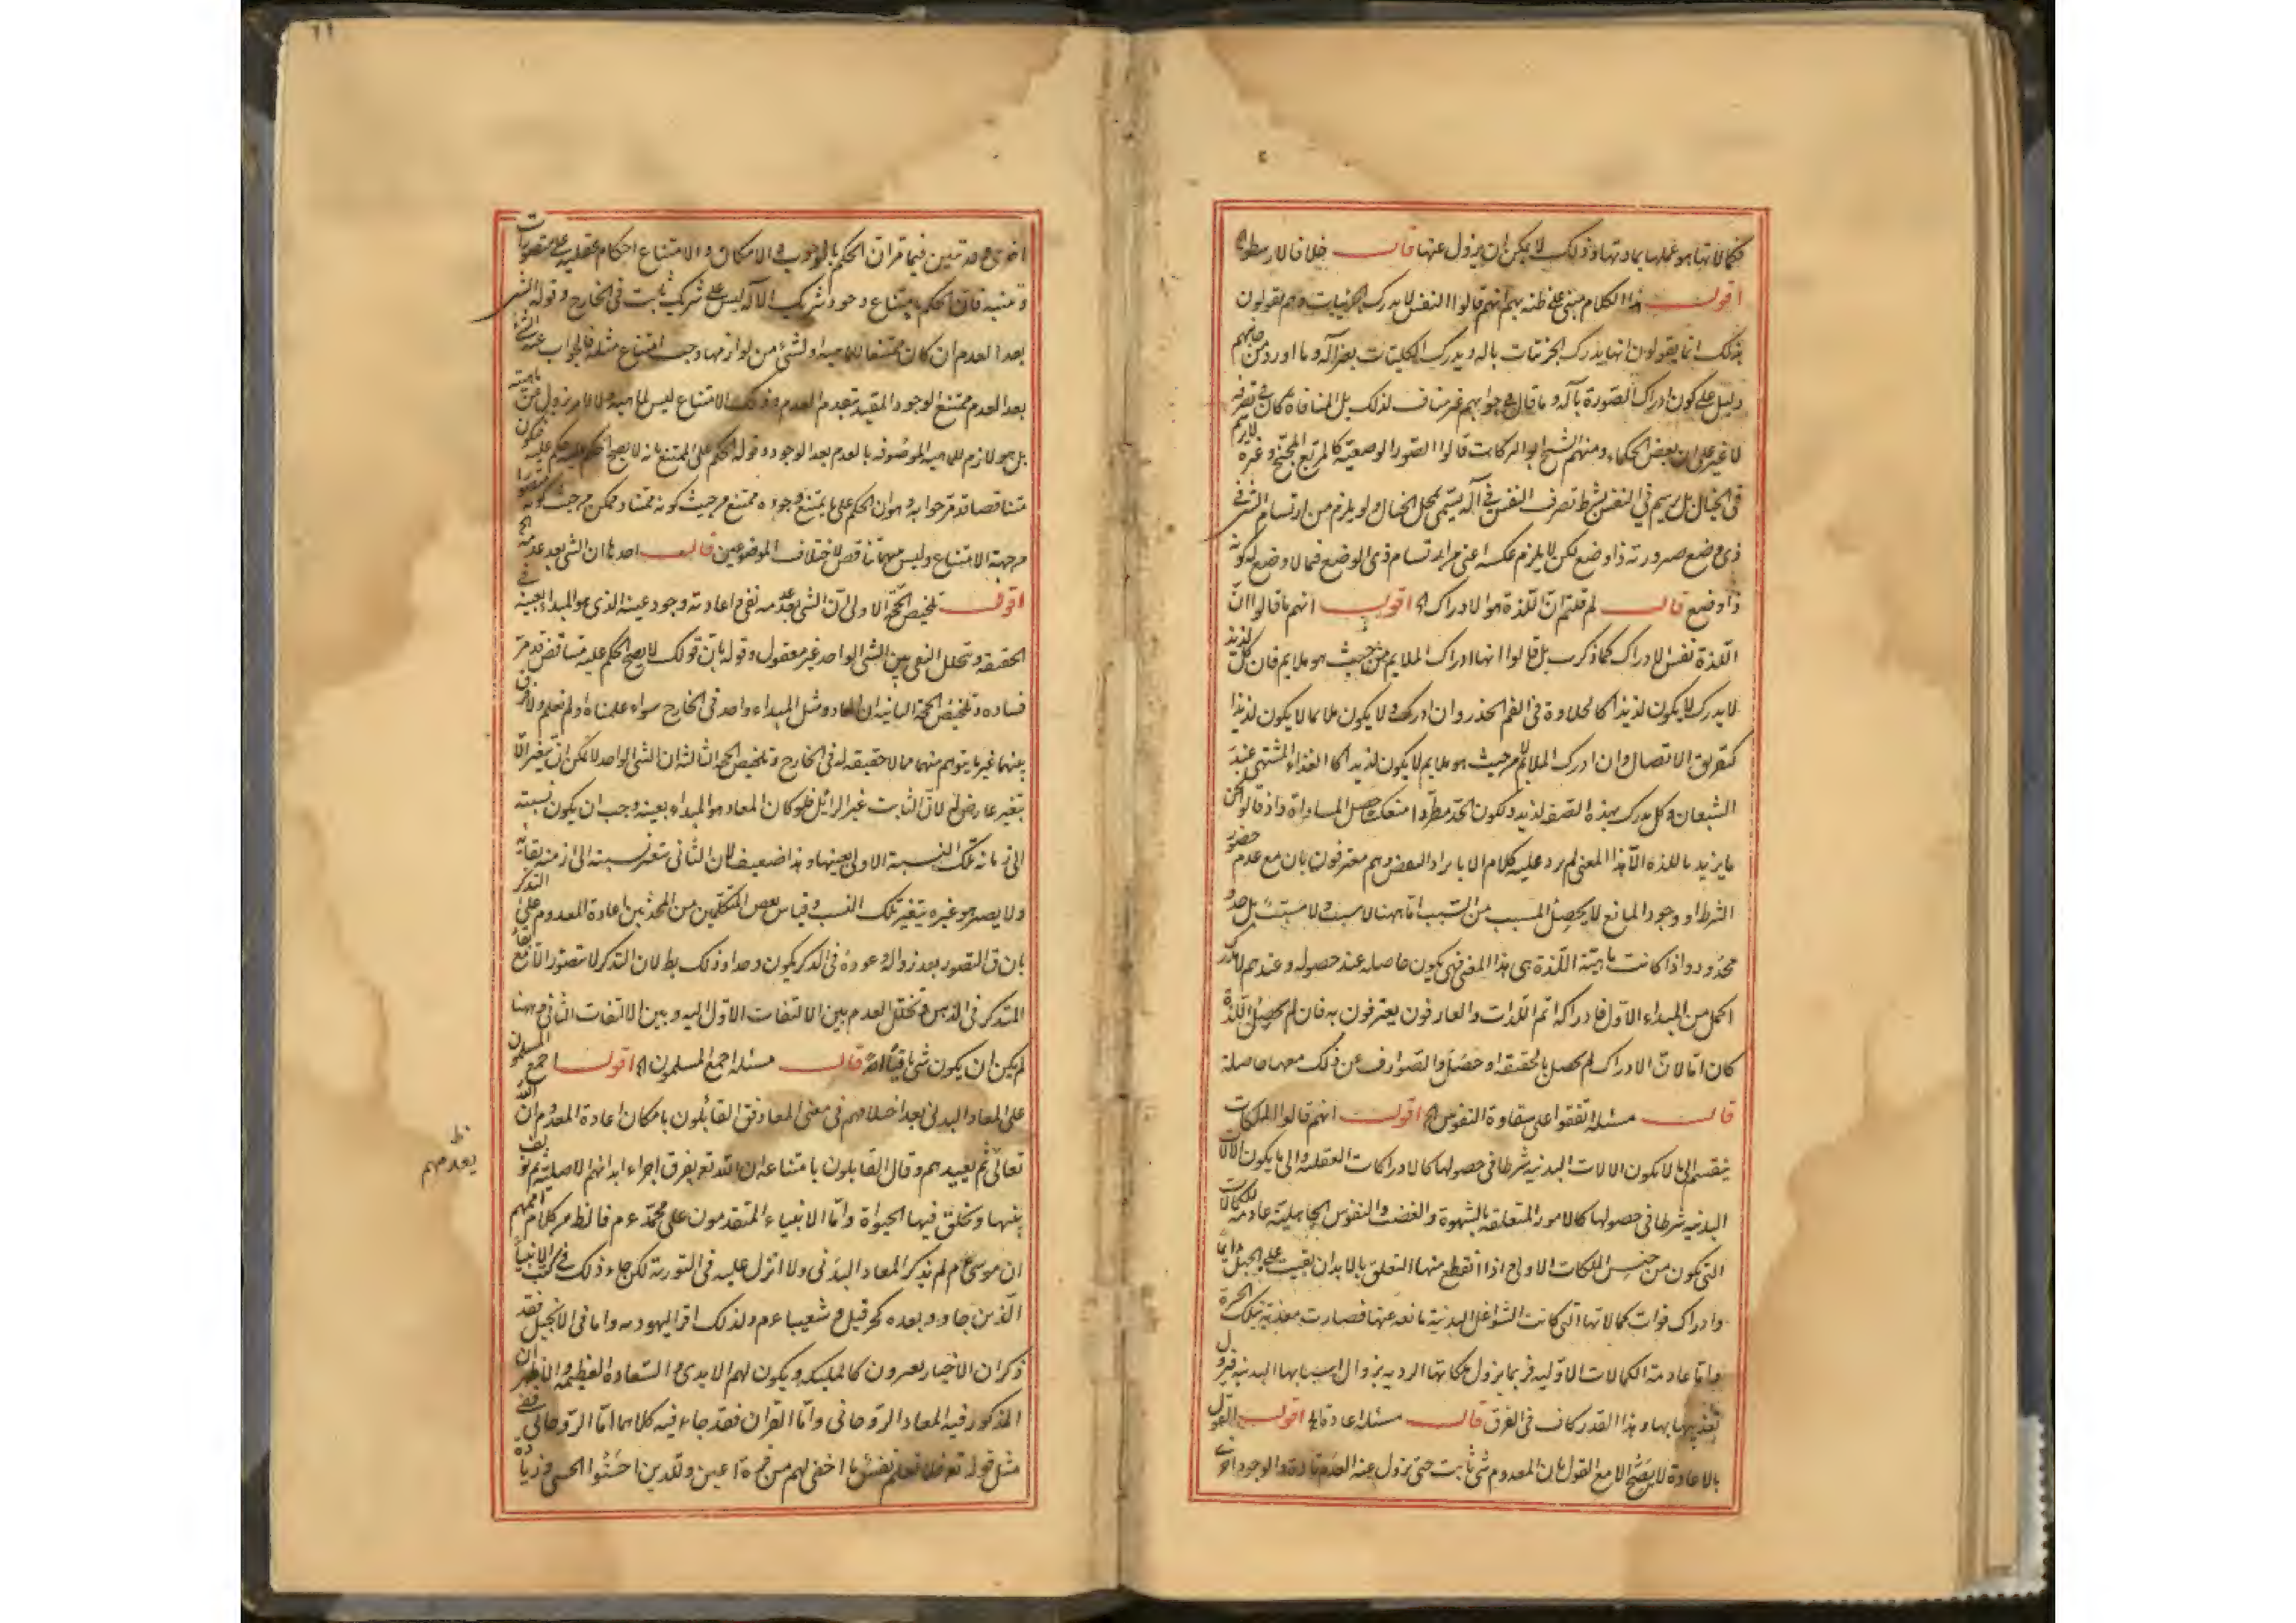 فكمالاتها هو عملها بمادتها وذلك لا يمكن ان يزول عنها قال خلافا لارسطو الخ
اقول هذا الكلام مبنى على ظنه بهم انهم قالوا النفس لا يدرك الجزئيات وهم يقولون
بذلك انما يقولون انها يدرك الجزئيات بآله ويدرك الكليات بغير آله وما اورد من جانبهم
دليل على كون ادراك الصورة بآله وما قال فى جوابهم غير مناف لذلك بل المنافاة
لا غير على ان بعض الحكماء ومنهم الشيخ ابو البركات قالوا الصور الوضعية كالمربع المجنح وغيره لا يرتسم
فى الخيال بل يرتسم فى النفس بشرط تصرف النفس فى آله يسمى محل الخيال ولو يلزم من ارتسام الشئ فى
ذى وضع صيرورته ذا وضع لكن لا يلزم عكسه اعنى من ارتسام ذى الوضع فيما لا وضع له كونه
ذا وضع قال لم قلتم ان اللذة هو الادراك الخ اقول انهم ما قالوا ان
اللذة نفس الادراك كما ذكرت بل قالوا انها ادراك الملايم من حيث هو ملايم فان كل لذيذ
لا يدرك لا يكون لذيذا كالحلاوة فى الفم الخدر وان ادرك ولا يكون ملايما لا يكون لذيذا
كتفريق الاتصال وان ادرك الملايم لا من حيث هو ملايم لا يكون لذيذا كالغذاء المشتهى عند
الشبعان وكل مدرك بهذه الصفه لذيذ ولكون الحد مطردا منعكسا حصل المساواة واذ قالوا نحن
ما يزيد باللذه الا هذا المعنى لم يرد عليه كلام الا بايراد النقض وهم معترفون بان مع عدم حضور
الشرط او وجود المانع لا يحصل المسبب من السبب اما ههنا لا سبب ولا مسبب بل حد و
محدود واذا كانت ماهية اللذة هى هذا المعنى فهى يكون حاصله عند حصوله وعندهم المدرك
اكمل من المبداء الاول فادراكه اتم اللذات والعارفون يعترفون به فان لم يحصل اللذة
كان اما لان الادراك لم يحصل بالحقيقه او حصل والصوارف عن ذلك معها حاصلة
قال مسئله اتفقوا على شقاوة النفوس الخ اقول انهم قالوا الملكات
ينقسم الى ما لا يكون الالات البدنيه شرطا فى حصولها كالادراكات العقلية والى ما يكون الالات
البدنيه شرطا فى حصولها كالامور المتعلقه بالشهوة والغضب والنفوس الجاهلية عادمة للكمالات
التى يكون من جنس الملكات الاولى اذا انقطع منها التعلق بالابدان بقيت على الجهل دايما
وادراك فوات كمالاتها التى كانت الشواغل البدنية مانعه عنها فصارت معذبة بتلك الحسرة
واما عادمة الكمالات الاوليه فربما يزول ملكاتها الرديه بزوال اسبابها البدنيه فيزول
تعذيبها بها وهذا القدر كاف فى الفرق قال مسئله اعادة الخ اقول القول
بالاعادة لا يصح الا مع القول بان المعدوم شئ ثابت حتى يزول عنه العدم تارة والوجود اخرى
اخرى وقد تبين فيما مر ان الحكم بالوجوب والامكان والامتناع احكام عقليه على متصورات
ذهنيه فان الحكم بامتناع وجود شريك الاله ليس على شريك ثابت فى الخارج وقوله الشئ
بعد العدم ان كان ممتنعا لماهيته او لشئ من لوازمها وجب امتناع مثله فالجواب عنه الشئ
بعد العدم ممتنع الوجود المقيد بعدم العدم وذلك الامتناع ليس لماهيته ولا لامر يزول عن ماهيته
بل هو لازم للماهيه الموصوفه بالعدم بعد الوجود وقوله الحكم على الممتنع بانه لا يصح الحكم عليه حكم عليه فيكون
متناقضا قد مر جوابه وهو ان الحكم على ما يمتنع وجوده ممتنع من حيث كونه ممتنعا وممكن من حيث كونه متصورا
من جهة الامتناع وليس بينهما تناقض لاختلاف الموضوعين قال احدها ان الشئ بعد عدمه الخ
اقول تلخيص الحجة الاولى ان الشئ بعد عدمه نفى واعادته وجود عينه الذى هو المبداء بعينه فى
الحقيقه وتخلل النفى بين الشئ الواحد غير معقول وقوله بان قولك لا يصح الحكم عليه متناقض قد مر
فساده وتلخيص الحجة الثانيه ان المعاد ومثل المبداء واحد فى الخارج سواء علمناه او لم نعلم ولا فرق
بينهما غير ما يتوهم منهما مما لا حقيقه له فى الخارج وتلخيص الحجة الثالثه ان الشئ الواحد لا يمكن ان يتغير الا
بتغير عارض له لان الثابت غير الزائل فلو كان المعاد هو المبداء بعينه وجب ان يكون نسبته
الى زمانه تلك النسبة الاولى بعينها وهذا ضعيف لان الثانى يتغير نسبته الى ازمنة بقائه
ولا يصير هو غيره بتغير تلك النسب وقياس بعض المتكلمين من المحدثين اعادة المعدوم على التذكر
بان التصور بعد زواله وعوده فى الذكر يكون واحدا وذلك بطلان التذكر لا يتصور الا مع بقاء
المتذكر فى الذهن وتخلل العدم بين الالتفات الاول اليه وبين الالتفات الثانى وههنا
لم يكن ان يكون شئ باقيا قال مسئله اجمع المسلمون الخ اقول اجمع المسلمون
على المعاد البدنى بعد اختلافهم فى معنى المعاد فق القائلون بامكان اعادة المعدوم ان الله
تعالى ثم يعيدهم وقال القايلون بامتناعه ان الله تعه يفرق اجزاء ابدانهم الاصلية ثم يولف
بينها ويخلق فيها الحيواة واما الانبياء المتقدمون على محمد عم فالظ من كلام اممهم
ان موسى عم لم يذكر المعاد البدنى ولا انزل عليه فى التورية لكن جاء ذلك فى كتب الانبياء
الذين جاوا بعده كحزقيل وشعيبا عم ولذلك اقر اليهود به واما فى الانجيل فقد
ذكر ان الاخيار يصيرون كالمليكه ويكون لهم الابدى والسعادة العظيمه والاظهر ان
المذكور فيه المعاد الروحانى واما القران فقد جاء فيه كلاهما اما الروحانى ففى
مثل قوله تعه فلا تعلم نفس ما اخفى لهم من قرة اعين وللذين احسنوا الحسنى وزيادة
يعدمهم ظ
١١